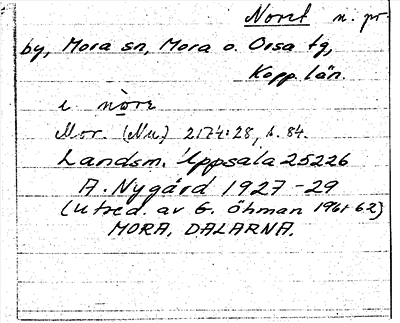 Noret n. pr.
by, Mora sn, Mora o. Orsa tg,
Kopp. län.
i nore
Mor. (Nu.) 2174:28, s. 84.
Landsm. Uppsala 25226
A. Nygård 1927-29
(utred. av G. Öhman 1961-62)
MORA, DALARNA.